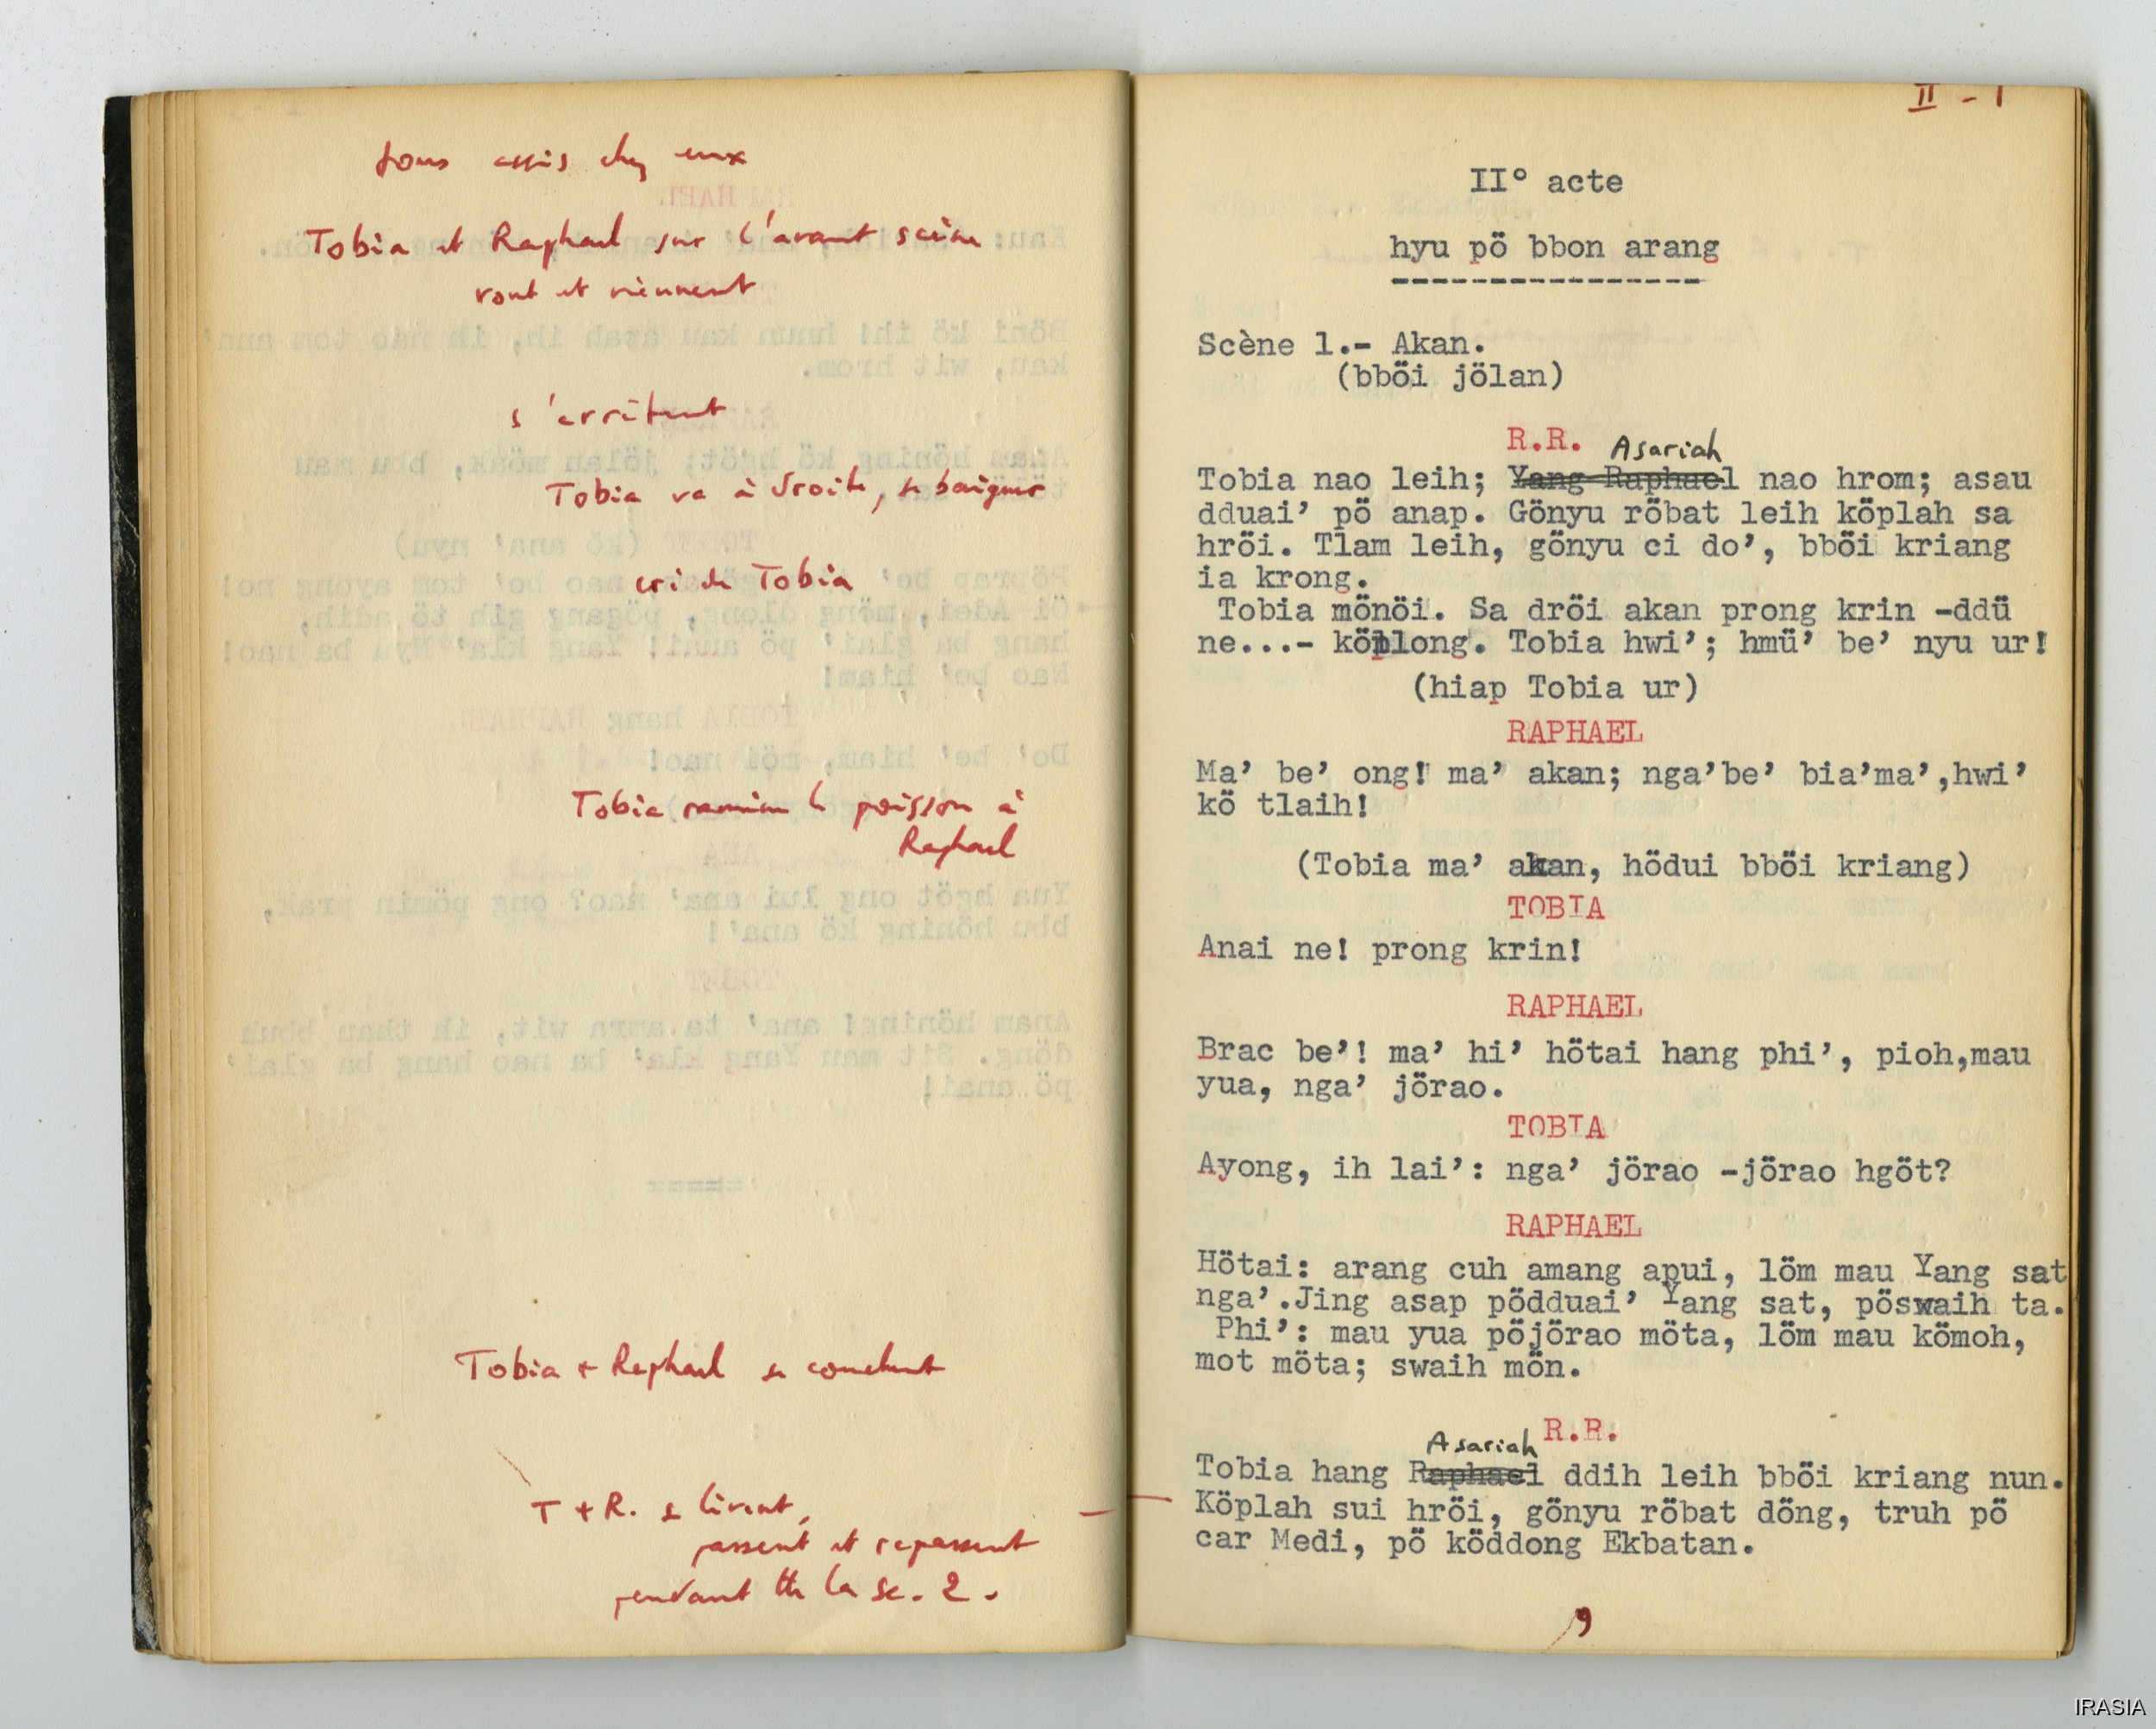 tous assis chez eux
Tobia et Raphael sur l'avant scène
vont et viennent
s'arrêtent
Tobia va à droite, se baigner
cri de Tobia
Tobia ramène le poisson à
Raphael
Tobia + Raphael se couchent
T + R. se lèvent,
passent et repassent
pendant tte la sc. 2.
II - 1
II° acte
hyu pö bbon arang
----------------
Scène 1.- Akan.
(bböi jölan)
R.R.
Asariah
Tobia nao leih; Yang Raphael nao hrom; asau
dduai’ pö anap. Gönyu röbat leih köplah sa
hröi. Tlam leih, gönyu ci do’, bböi kriang
ia krong.
Tobia mönöi. Sa dröi akan prong krin -ddü
ne...- köplong. Tobia hwi’; hmü’ be’ nyu ur!
(hiap Tobia ur)
RAPHAEL
Ma’ be’ ong! ma’ akan; nga’be’ bia’ma’,hwi’
kö tlaih!
(Tobia ma’ akan, hödui bböi kriang)
TOBIA
Anai ne! prong krin!
RAPHAEL
Brac be’! ma’ hi’ hötai hang phi’, pioh,mau
yua, nga’ jörao.
TOBIA
Ayong, ih lai’: nga’ jörao -jörao hgöt?
RAPHAEL
Hötai: arang cuh amang apui, löm mau Yang sat
nga’.Jing asap pödduai’ Yang sat, pöswaih ta.
Phi’: mau yua pöjörao möta, löm mau kömoh,
mot möta; swaih mön.
R.R.
Asariah
Tobia hang Raphael ddih leih bböi kriang nun.
Köplah sui hröi, gönyu röbat döng, truh pö
car Medi, pö köddong Ekbatan.
9
IRASIA